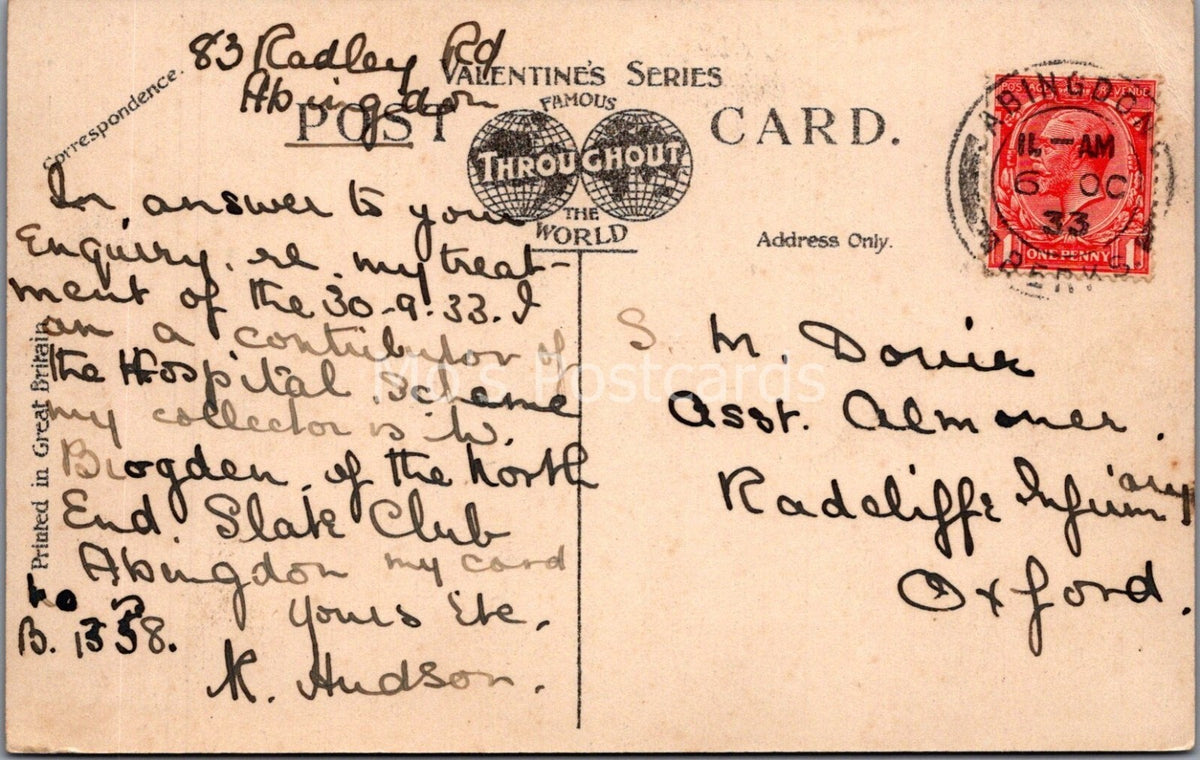 83 Radley Rd
Abingdon
Correspondence.
VALENTINE'S SERIES
FAMOUS
POST CARD.
THROUGHOUT
THE
WORLD
Address Only.
Printed in Great Britain
In answer to your
Enquiry. re. my treat-
ment of the 30-9-33. I
am a contributor of
the Hospital Scheme
my collector is W.
Brogden of the North
End Slate Club
Abingdon my card
No is
B. 1358.
yours Etc.
K. Hudson.
ABINGDON
11 - AM
6 OC
33
BERKS
POSTAGE REVENUE
1 ONE PENNY 1
S. M.
Asst. Almoner.
Radcliffe Infirmary
Oxford.
Mo's Postcards